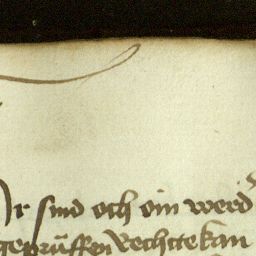 Ir sind och ein werd
geprüffen Rechtte kan